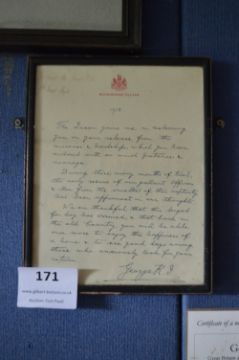 BUCKINGHAM PALACE
1918
The Queen joins me in welcoming
you on your release from the
miseries & hardships, which you have
endured with so much patience &
courage.
During these many months of trial,
the early rescue of our gallant Officers
& Men from the cruelties of their captivity
has been uppermost in our thoughts.
We are thankful that this longed
for day has arrived, & that back in
the old Country you will be able
once more to enjoy the happiness of
a home & to see good days among
those who anxiously look for your
return.
George R.I.
171
Certificate of a
G